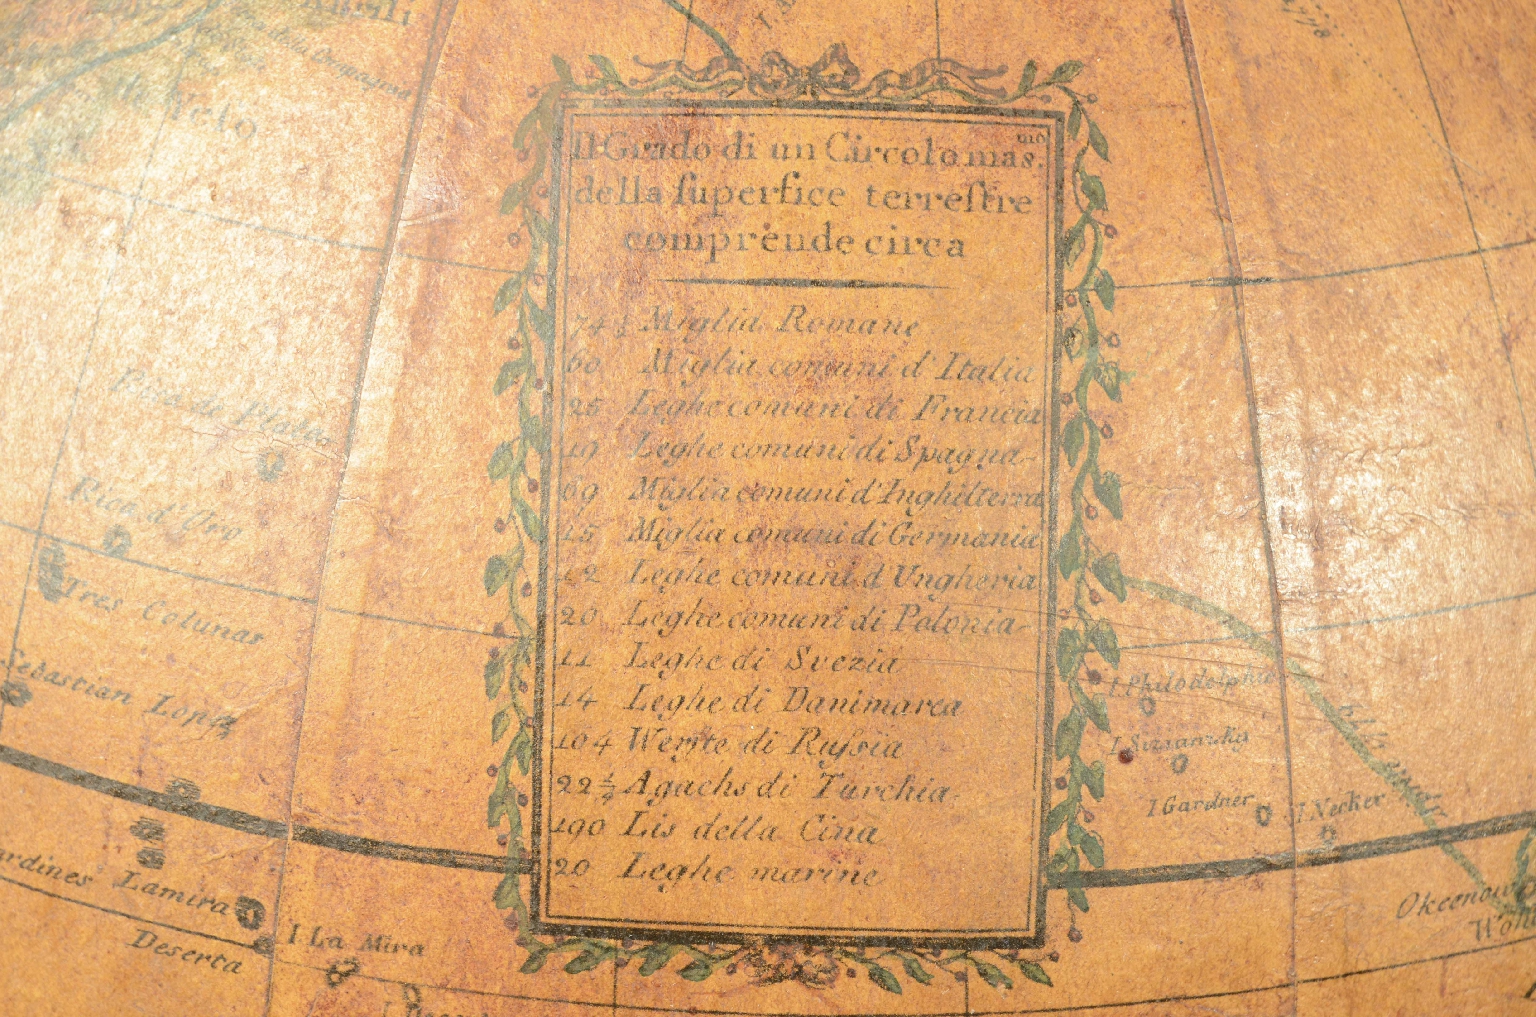 Il Grado di un Circolo mas.mo
della ſuperfice terreſtre
comprende circa
74 ½ Miglia Romane
60 Miglia comuni d'Italia
25 Leghe comuni di Francia
19 Leghe comuni di Spagna
69 Miglia comuni d'Inghilterra
15 Miglia comuni di Germania
12 Leghe comuni d'Ungheria
20 Leghe comuni di Polonia
11 Leghe di Svezia
14 Leghe di Danimarca
104 Werſte di Ruſsia
22 ½ Agachs di Turchia
190 Lis della Cina
20 Leghe marine
Rica de Plata
Rica d'Oro
Tres Colunas
Sebastian Lopez
Lamira
Deserta
I La Mira
I.Philodelphia
I.Sizianzky
I Gardner
I.Necker